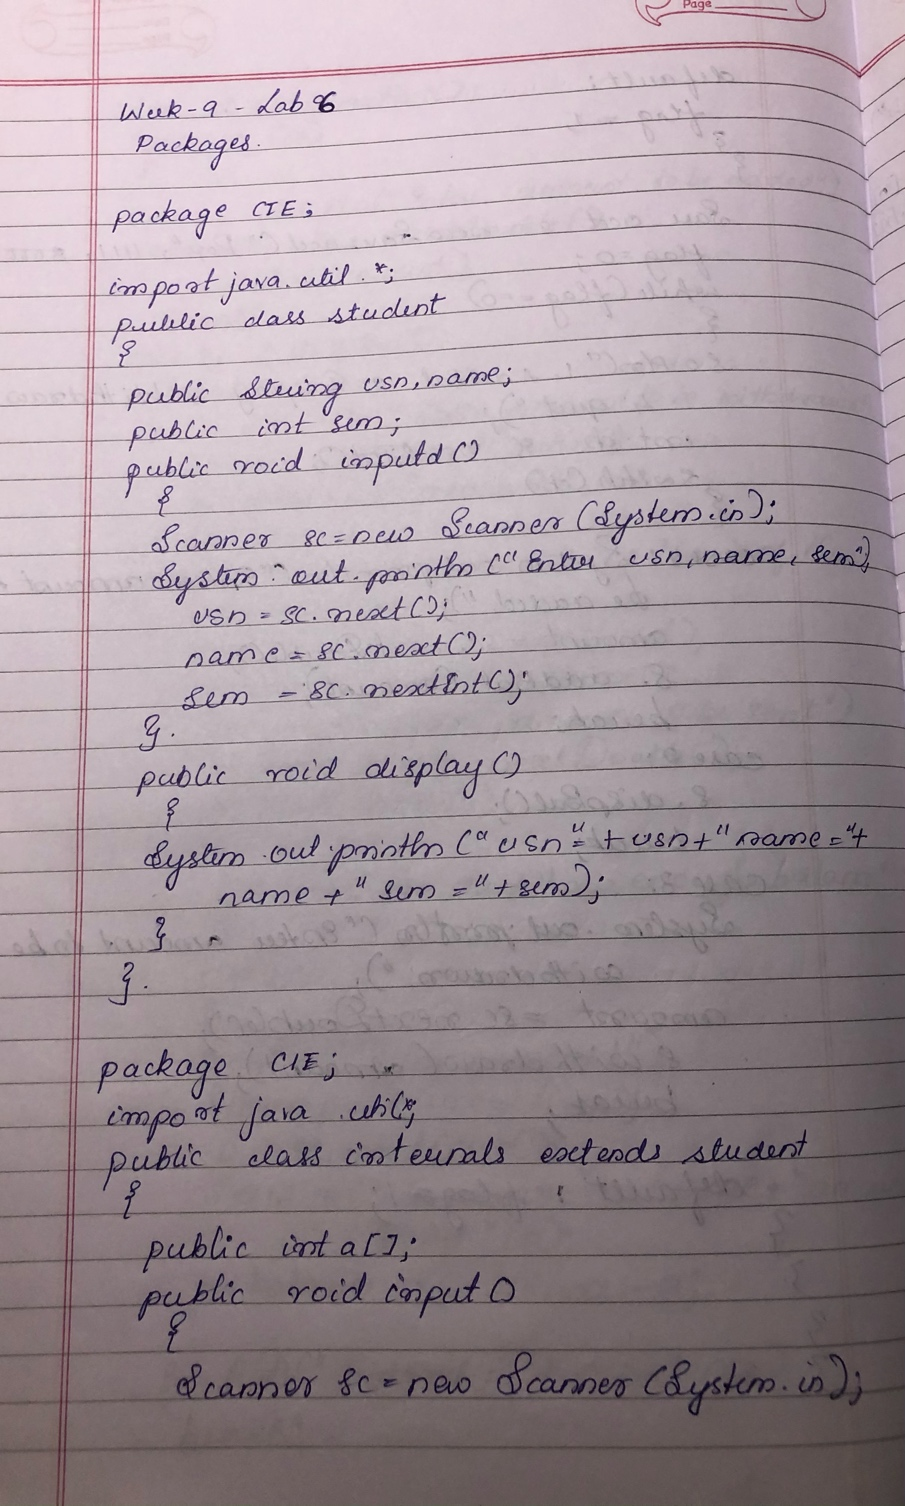 Page
Week-9 - Lab 6
Packages.
package CIE;
import java.util.*;
public class student
{
public String usn, name;
public int sem;
public void inputd()
{
Scanner sc = new Scanner (System.in);
System.out.println ("Enter usn, name, sem");
usn = sc.next();
name = sc.next();
sem = sc.nextInt();
}.
public void display()
{
System.out.println ("usn=" + usn + "name=" +
name + "sem =" + sem);
}
}.
package CIE;
import java.util.*;
public class internals extends student
{
public int a[];
public void input()
{
Scanner sc = new Scanner (System.in);